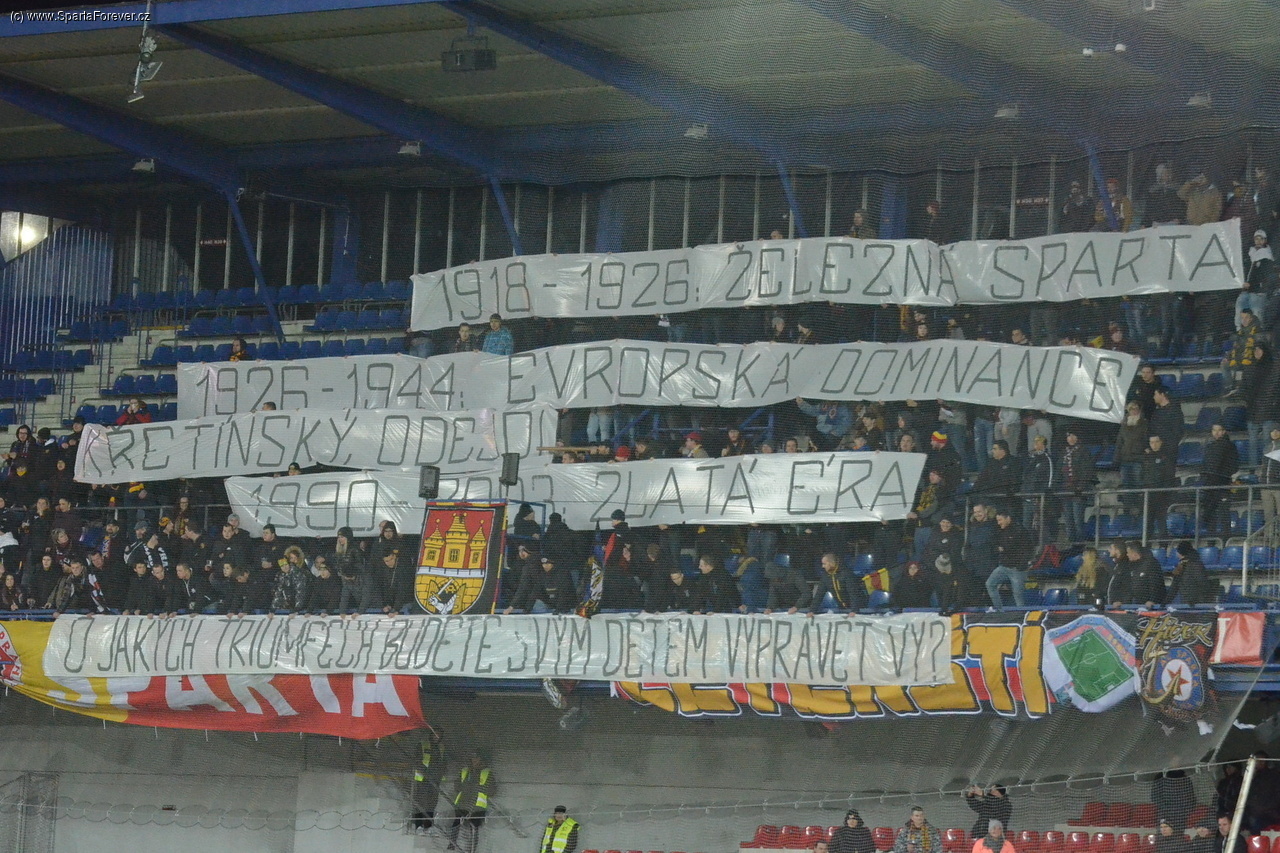 (c) www.SpartaForever.cz
1918 - 1926: ŽELEZNÁ SPARTA
1926 - 1944: EVROPSKÁ DOMINANCE
KŘETÍNSKÝ, ODEJDI!
1990 - 2003: ZLATÁ ÉRA
O JAKÝCH TRIUMFECH BUDETE SVÝM DĚTEM VYPRÁVĚT VY?
SPARTA
LETENŠTÍ